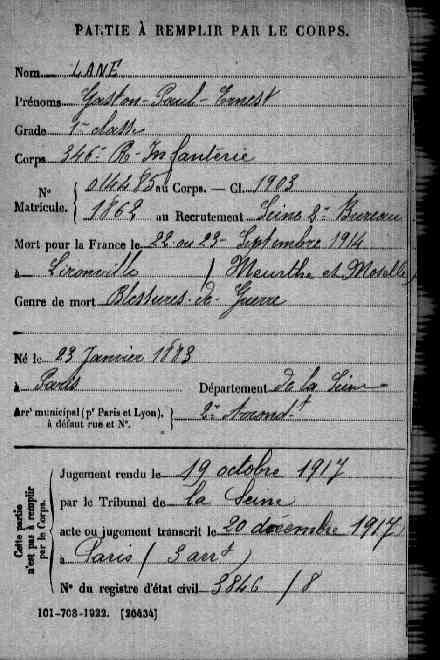 PARTIE À REMPLIR PAR LE CORPS.
Nom LANE
Prénoms Gaston-Paul-Ernest
Grade 1re classe
Corps 346e R. Infanterie
N° Matricule. { 014485 au Corps. — Cl. 1903
1862 au Recrutement Seine 2e Bureau
Mort pour la France le 22 ou 23 Septembre 1914
à Lironville (Meurthe et Moselle)
Genre de mort Blessures de Guerre
Né le 23 Janvier 1883
à Paris Département de la Seine
Arrt municipal (pr Paris et Lyon), à défaut rue et N°. } 2e Arrondt
Cette partie n'est pas à remplir par le Corps.
Jugement rendu le 19 octobre 1917
par le Tribunal de la Seine
acte ou jugement transcrit le 20 décembre 1917
à Paris (3 arrt)
N° du registre d'état civil 3846 / 8
161-708-1922. [26434]